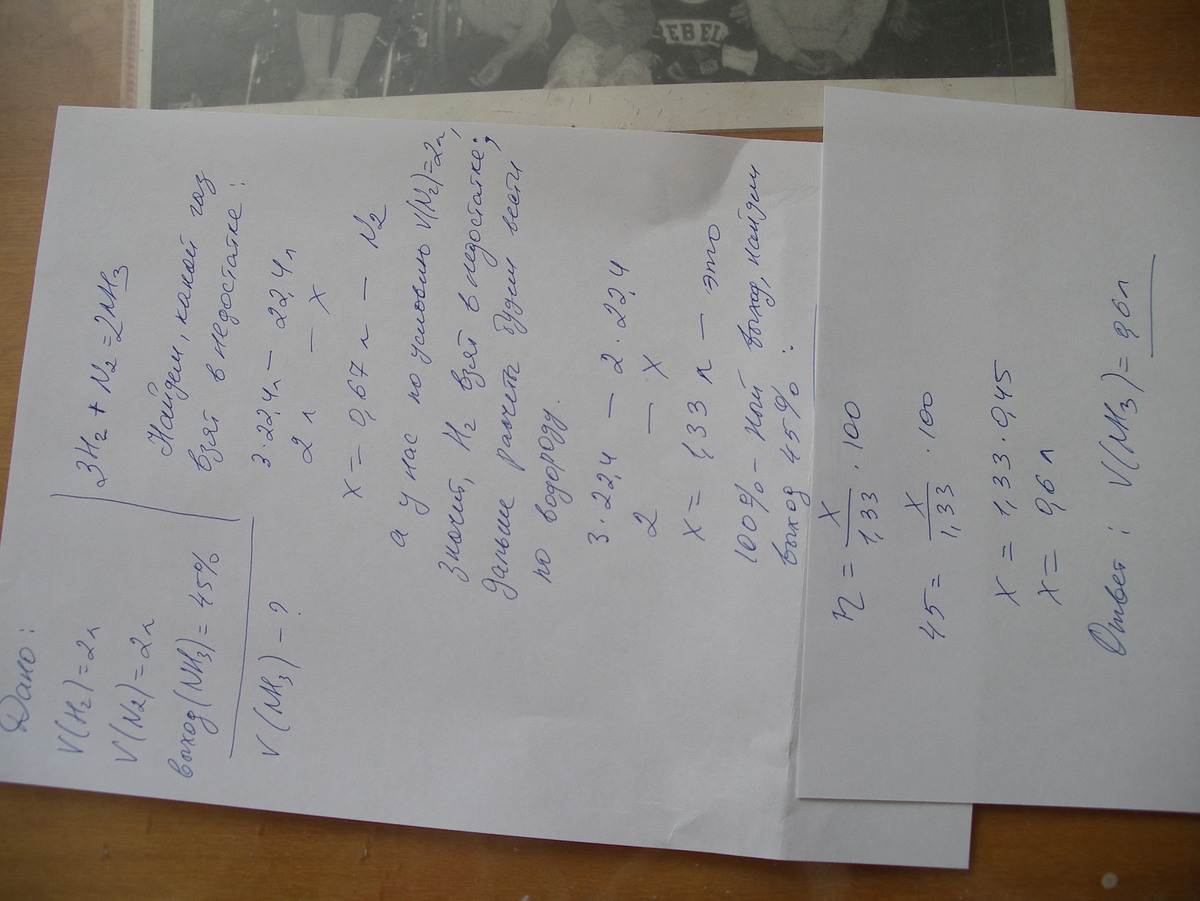 Дано:
V(H2)=2л
V(N2)=2л
выход(NH3)=45%
V(NH3)-?
3H2 + N2 = 2NH3
Найдем, какой газ
взят в недостатке:
3·22,4л — 22,4л
2 л — х
х = 0,67 л — N2
а у нас по условию V(N2)=2л,
значит, H2 взят в недостатке;
дальше расчеты будем вести
по водороду.
3·22,4 — 2·22,4
2 — х
х = 1,33 л — это
100%-ный выход, найдем
выход 45%:
η = х/1,33 · 100
45 = х/1,33 · 100
х = 1,33·0,45
х = 0,6 л
Ответ: V(NH3)=0,6л
EBEL